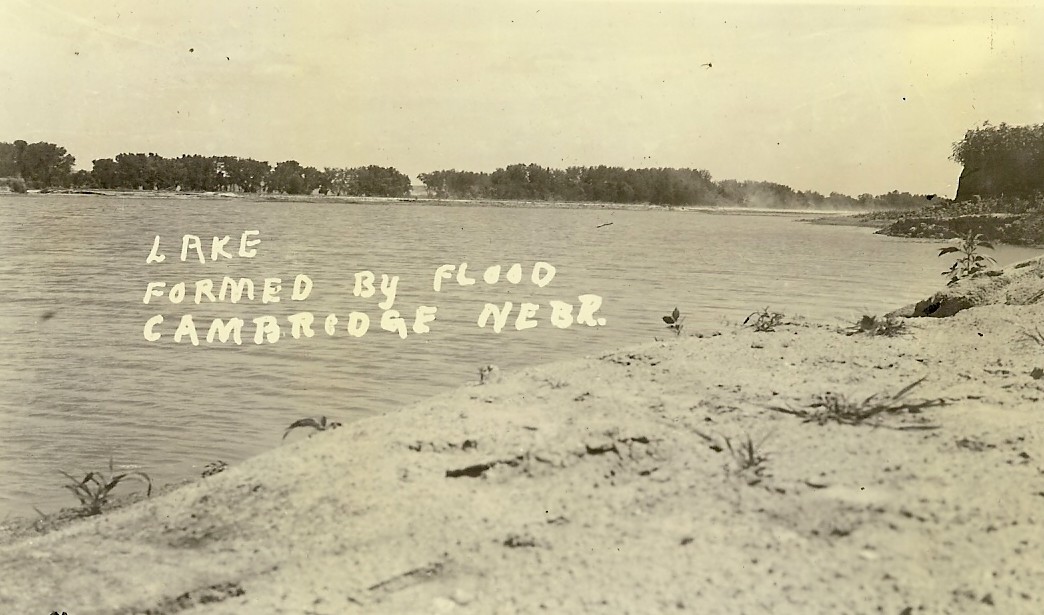 LAKE
FORMED By FLOOD
CAMBRIDGE NEBR.